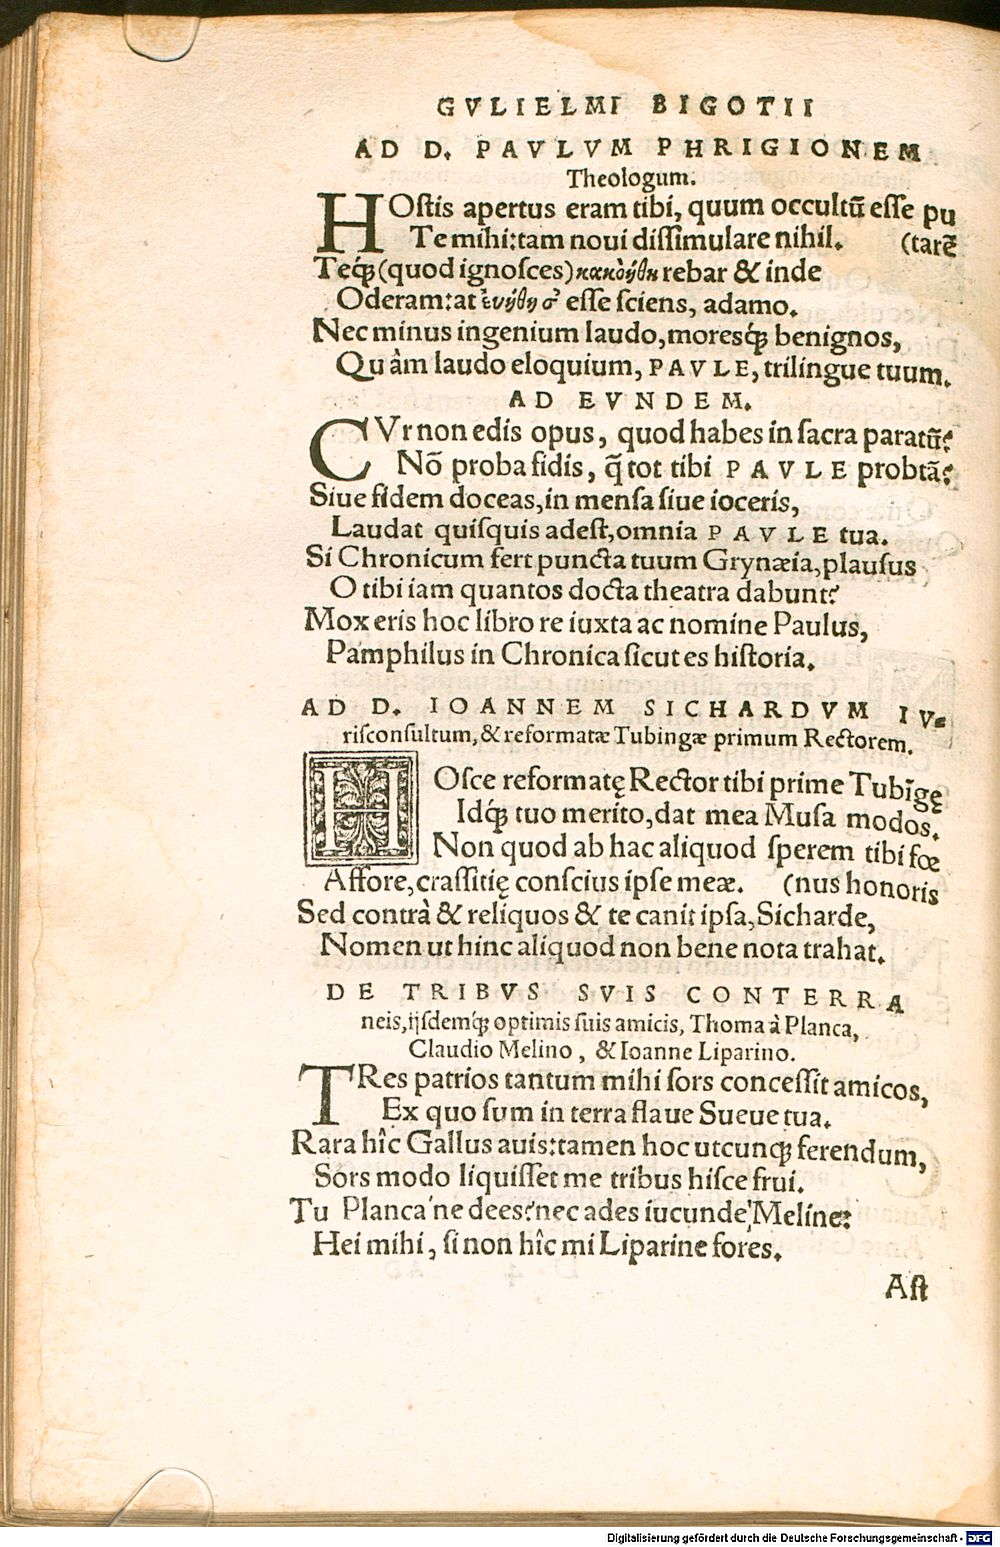 GVLIELMI BIGOTII
AD D. PAVLVM PHRIGIONEM
Theologum.
HOſtis apertus eram tibi, quum occultũ eſſe pu
Te mihi: tam noui diſſimulare nihil. (tarẽ
Teq́ꝫ (quod ignoſces) κακοήθη rebar & inde
Oderam: at ἐυήθη σ' eſſe ſciens, adamo.
Nec minus ingenium laudo, moresq́ꝫ benignos,
Quàm laudo eloquium, PAVLE, trilingue tuum.
AD EVNDEM.
CVr non edis opus, quod habes in ſacra paratũ?
Nõ proba fidis, q̃ tot tibi PAVLE probtã?
Siue fidem doceas, in menſa ſiue ioceris,
Laudat quiſquis adeſt, omnia PAVLE tua.
Si Chronicum fert puncta tuum Grynæia, plauſus
O tibi iam quantos docta theatra dabunt?
Mox eris hoc libro re iuxta ac nomine Paulus,
Pamphilus in Chronica ſicut es hiſtoria.
AD D. IOANNEM SICHARDVM IV-
riſconſultum, & reformatæ Tubingæ primum Rectorem.
HOſce reformatę Rector tibi prime Tubĩgę
Idq́ꝫ tuo merito, dat mea Muſa modos.
Non quod ab hac aliquod ſperem tibi fœ
Affore, craſſitię conſcius ipſe meæ. (nus honoris
Sed contrà & reliquos & te canit ipſa, Sicharde,
Nomen ut hinc aliquod non bene nota trahat.
DE TRIBVS SVIS CONTERRA
neis, ijſdemq́ꝫ optimis ſuis amicis, Thoma à Planca,
Claudio Melino, & Ioanne Liparino.
TRes patrios tantum mihi ſors conceſſit amicos,
Ex quo ſum in terra flaue Sueue tua.
Rara hîc Gallus auis: tamen hoc utcunqꝫ ferendum,
Sors modo liquiſſet me tribus hiſce frui.
Tu Planca ne dees? nec ades iucunde Meline?
Hei mihi, ſi non hîc mi Liparine fores.
Aſt
Digitalisierung gefördert durch die Deutsche Forschungsgemeinschaft - DFG